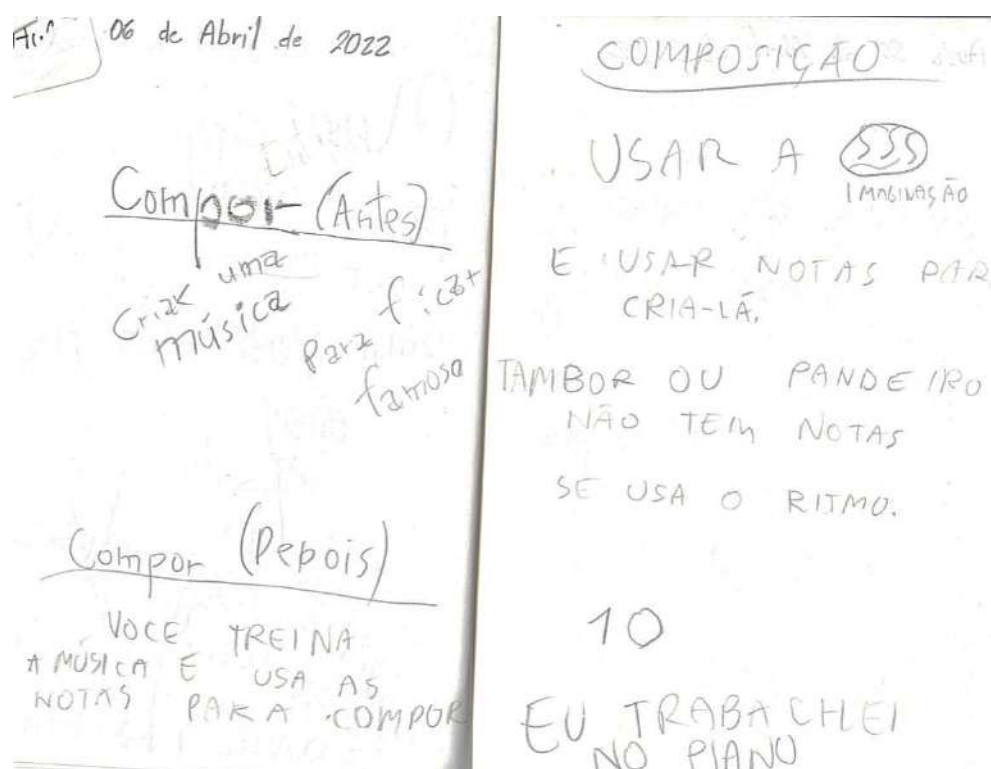 06 de Abril de 2022
Compor (Antes)
Criar uma
música
para ficar
famoso
Compor (Depois)
VOCE TREINA
A MÚSICA E USA AS
NOTAS PARA COMPOR
COMPOSIÇÃO
USAR A
IMAGINAÇÃO
E USAR NOTAS PAR
CRIA-LÁ.
TAMBOR OU PANDEIRO
NÃO TEM NOTAS
SE USA O RITMO.
10
EU TRABACHLEI
NO PIANO